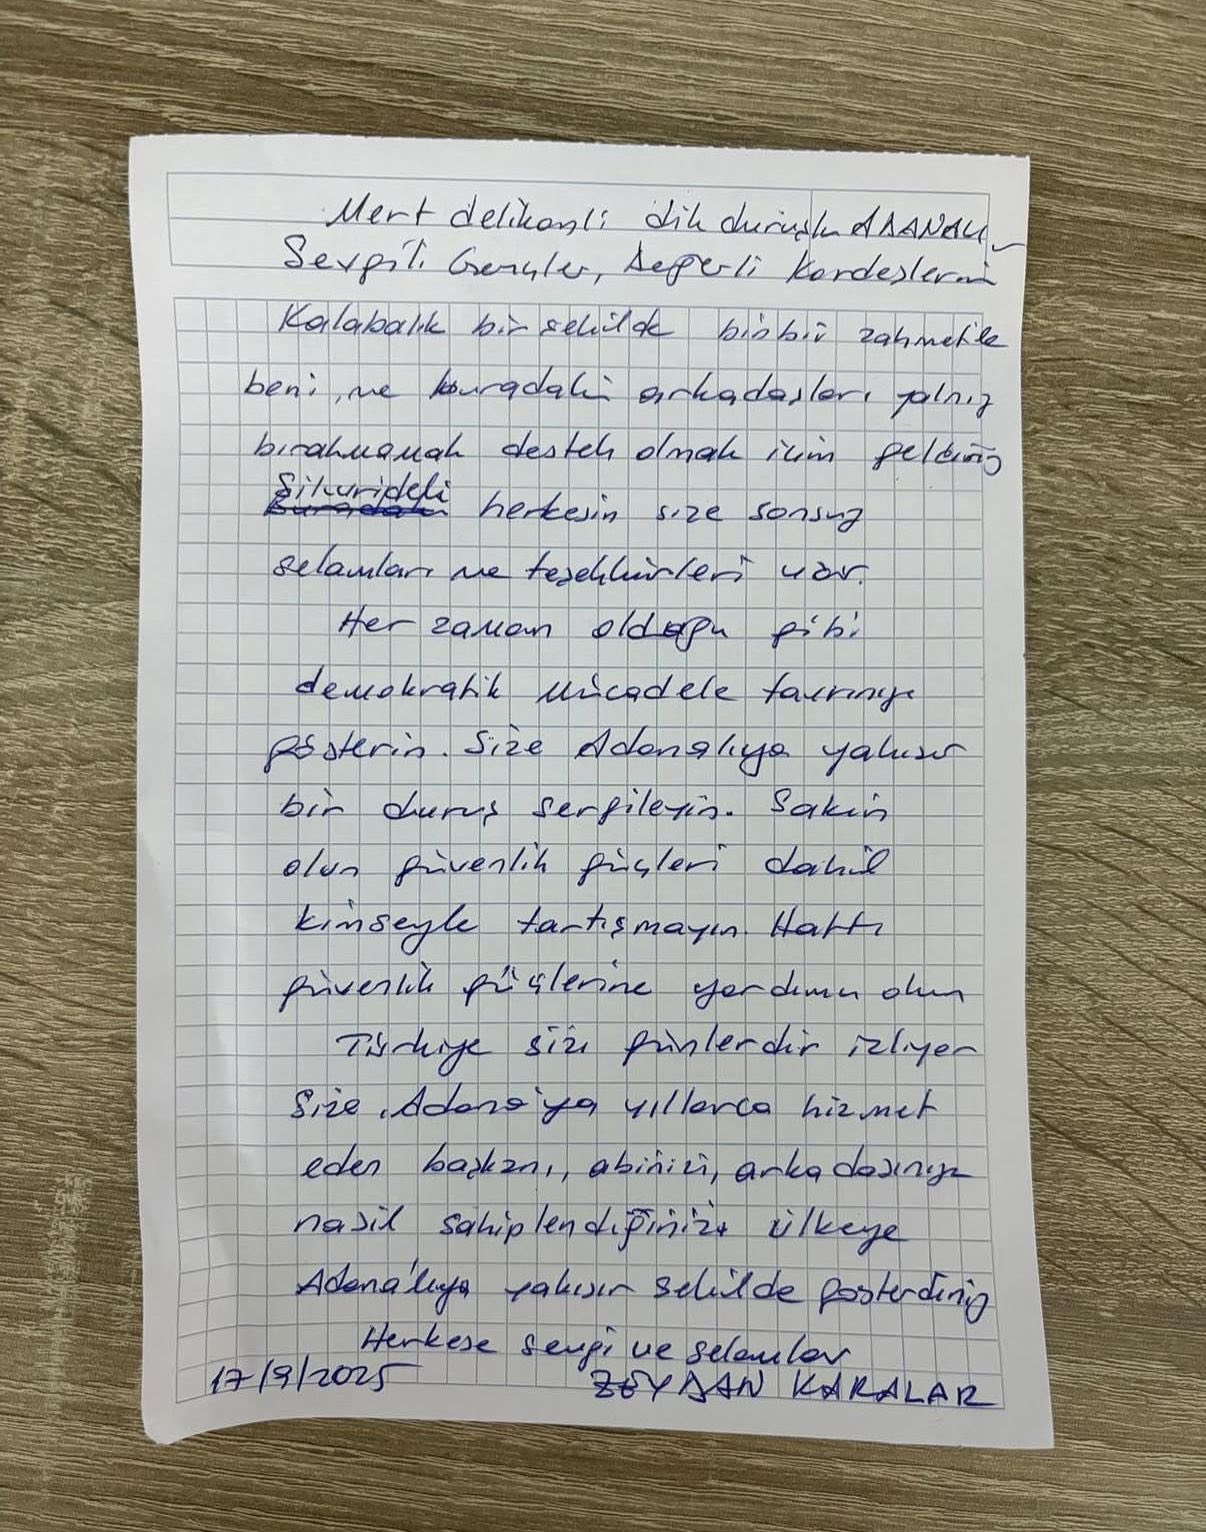 Mert delikanlı dik duruşlu ADANALI
Sevgili Gençler, Değerli Kardeşlerim
Kalabalık bir şekilde binbir zahmetle
beni, ve buradaki arkadaşları yalnız
bırakmamak destek olmak için geldiniz
Silivrideki
herkesin size sonsuz
selamları ve teşekkürleri var.
Her zaman olduğu gibi
demokratik mücadele tavrınızı
gösterin. Size Adanalıya yakışır
bir duruş sergileyin. Sakin
olun güvenlik güçleri dahil
kimseyle tartışmayın. Hatta
güvenlik güçlerine yardımcı olun
Türkiye sizi günlerdir izliyor
Size, Adana'ya yıllarca hizmet
eden başkanı, abinizi, arkadaşınızı
nasıl sahiplendiğinizi ülkeye
Adana'lıya yakışır şekilde gösterdiniz
Herkese sevgi ve selamlar
17/9/2025 ZEYDAN KARALAR